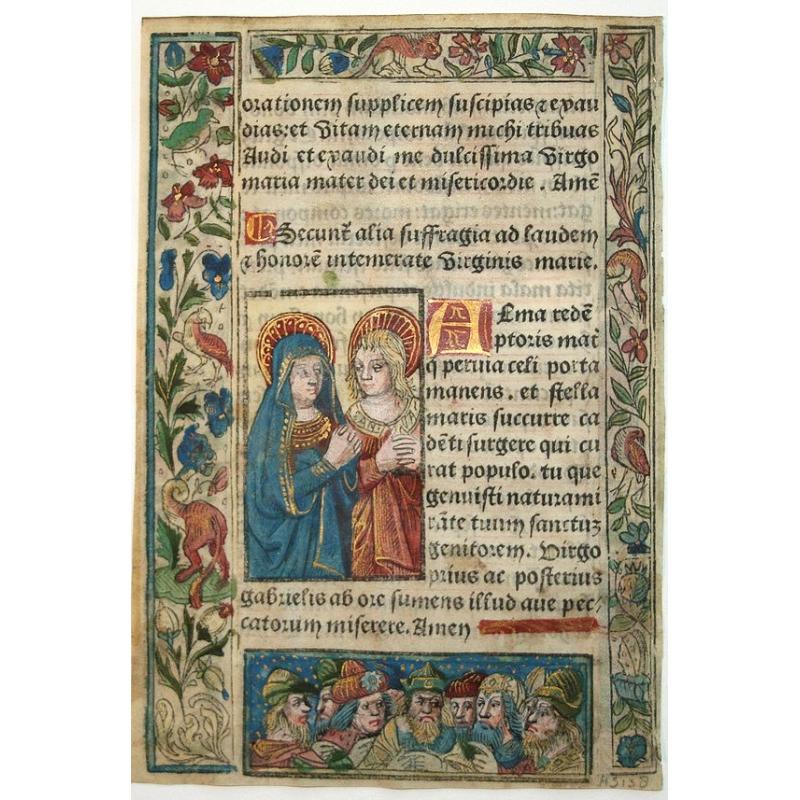 orationem supplicem suscipias ⁊ exau
dias: et Vitam eternam michi tribuas
Audi et exaudi me dulcissima Virgo
maria mater dei et misericordie . Amē
Secunt̄ alia suffragia ad laudem
⁊ honorē intemerate Virginis marie.
Alma redē
ptoris mat̄
q̄ peruia celi porta
manens . et stella
maris succurre ca
dēti surgere qui cu
rat populo. tu que
genuisti natura mi
rāte tuum sanctuꝫ
genitorem. Virgo
prius ac posterius
gabrielis ab ore sumens illud aue pec⸗
catorum miserere. Amen